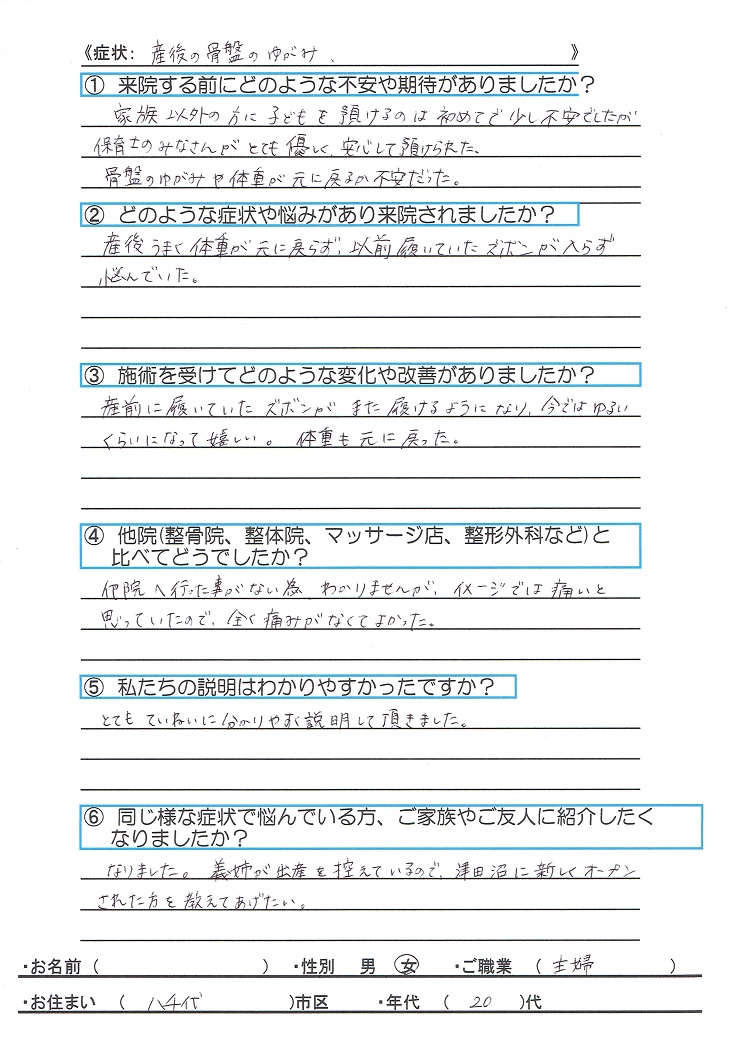 《症状: 産後の骨盤のゆがみ、 》
① 来院する前にどのような不安や期待がありましたか？
家族以外の方に子どもを預けるのは初めてで少し不安でしたが
保育士のみなさんがとても優しく、安心して預けられた、
骨盤のゆがみや体重が元に戻るか不安だった。
② どのような症状や悩みがあり来院されましたか？
産後うまく体重が元に戻らず、以前履いていたズボンが入らず
悩んでいた。
③ 施術を受けてどのような変化や改善がありましたか？
産前に履いていたズボンがまた履けるようになり、今ではゆるい
くらいになって嬉しい。 体重も元に戻った。
④ 他院(整骨院、整体院、マッサージ店、整形外科など)と
比べてどうでしたか？
他院へ行った事がない為、わかりませんが、イメージでは痛いと
思っていたので、全く痛みがなくてよかった。
⑤ 私たちの説明はわかりやすかったですか？
とてもていねいに分かりやすく説明して頂きました。
⑥ 同じ様な症状で悩んでいる方、ご家族やご友人に紹介したく
なりましたか？
なりました。義姉が出産を控えているので、津田沼に新しくオープン
された方を教えてあげたい。
・お名前 ( ) ・性別 男 女 ・ご職業 ( 主婦 )
・お住まい ( 八千代 )市区 ・年代 ( 20 )代